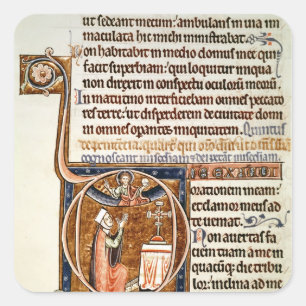 ut sedeant mecum: ambulans in uia in
maculata hic michi ministrabat.
Non habitabit in medio domus mee qui
facit superbiam: qui loquitur iniqua
non direxit in conspectu oculorum meorum.
In matutino interficiebam omnes peccato
res terre: ut disperderem de ciuitate domini
omnes operantes iniquitatem. Quintus
D NE EXAUDI
orationem meam:
et clamor meus ad
te ueniat.
Non auertas faciem
tuam a me in
quacumque die tribu
lor: inclina ad me